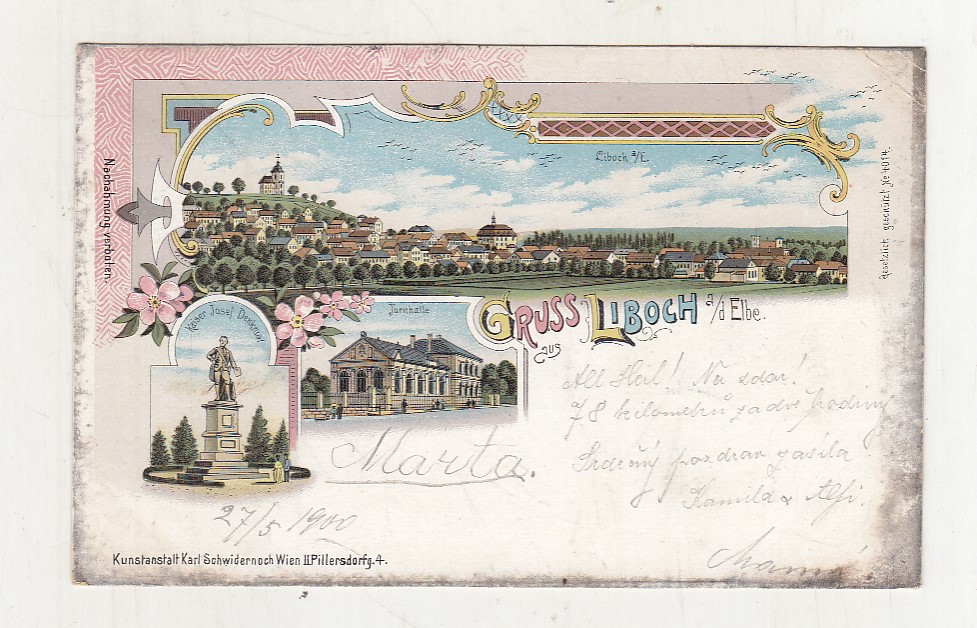 Nachahmung verboten.
Liboch a/E.
Gesetzlich geschützt No 4014.
Kaiser Josef Denkmal
Turnhalle
GRUSS aus LIBOCH a/d Elbe.
All Heil! Na zdar!
78 kilometrů za dvě hodiny
Srdečný pozdrav zasílá
Kamila & Alfi.
Marta.
27/5 1900
Kunstanstalt Karl Schwidernoch Wien II Pillersdorfg. 4.